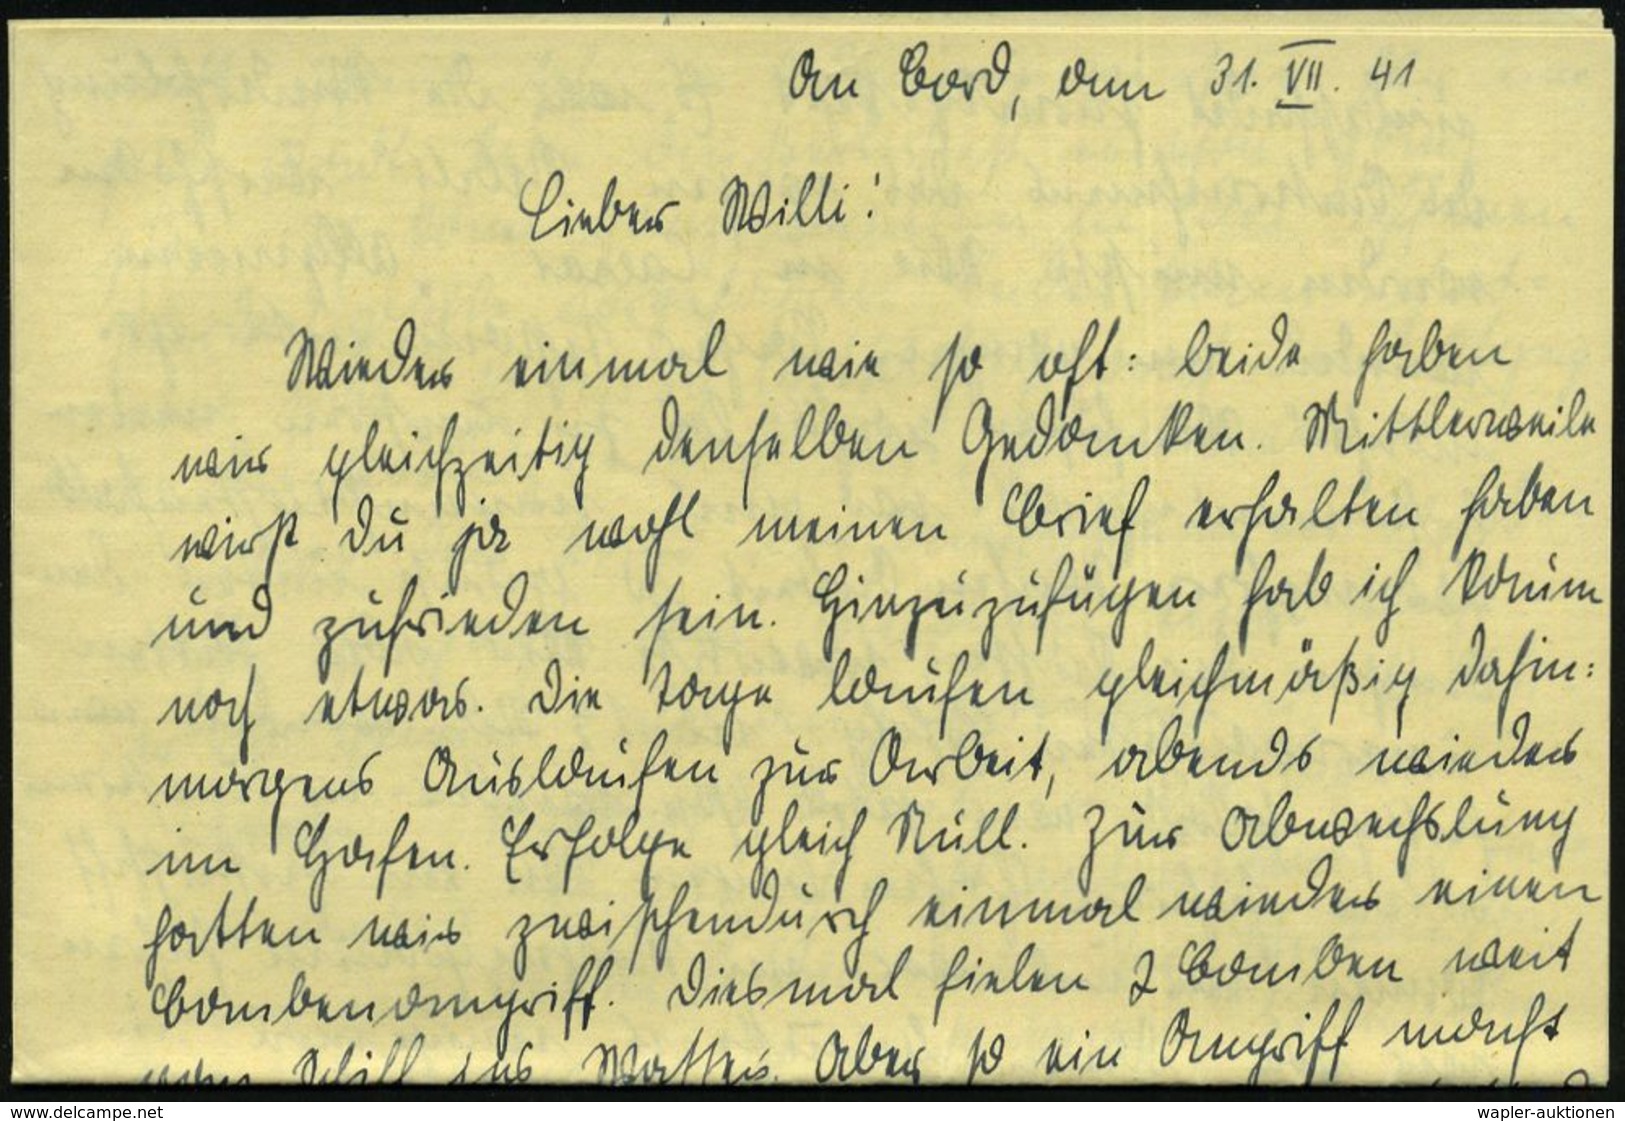 An Bord, den 31. VII. 41
Lieber Willi!
Wieder einmal wie so oft: beide haben
wir gleichzeitig denselben Gedanken. Mittlerweile
wirst Du ja wohl meinen Brief erhalten haben
und zufrieden sein. Hinzuzufügen hab ich kaum
noch etwas. Die Tage laufen gleichmäßig dahin:
morgens Auslaufen zur Arbeit, abends wieder
im Hafen. Erfolge gleich Null. Zur Abwechslung
hatten wir zwischendurch einmal wieder einen
Bombenangriff. Diesmal fielen 2 Bomben weit
vom Schiff ins Wasser. Aber so ein Angriff macht
www.delcampe.net
wapler-auktionen